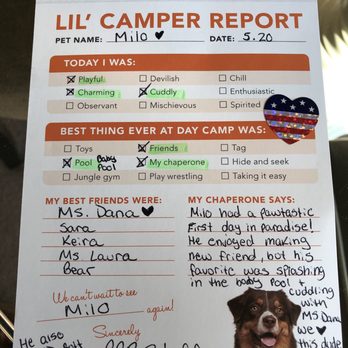 LIL' CAMPER REPORT
PET NAME: Milo ♥ DATE: 5.20
TODAY I WAS:
☒ Playful ☐ Devilish ☐ Chill
☒ Charming ☒ Cuddly ☐ Enthusiastic
☐ Observant ☐ Mischievous ☐ Spirited
BEST THING EVER AT DAY CAMP WAS:
☐ Toys ☒ Friends ☐ Tag
☒ Pool Baby Pool ☒ My chaperone ☐ Hide and seek
☐ Jungle gym ☐ Play wrestling ☐ Taking it easy
MY BEST FRIENDS WERE:
Ms. Dana ♥
Sara
Keira
Ms Laura
Bear
We can't wait to see
Milo again!
Sincerely
He also
MY CHAPERONE SAYS:
Milo had a pawtastic
first day in paradise!
He enjoyed making
new friend, but his
favorite was splashing
in the baby Pool +
cuddling
with
Ms Dana
we ♥
this dude